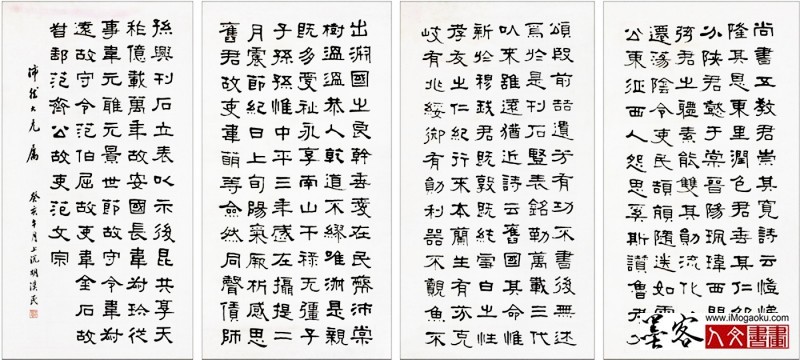 尚書五教君崇其寬詩云愷悌君
隆其恩東里潤色君垂其仁邵伯
分陝君懿于棠晉陽珮瑋西門帶
弦君之體素能雙其勛流化八基
遷蕩陰令吏民頡頏隨送如雲周
公東征西人怨思奚斯讚魯考父
頌殷前喆遺芳有功不書後無述
焉於是刊石豎表銘勒萬載三代
以來雖遠猶近詩云舊國其命惟
新於穆我君既敦既純雪白之性
孝友之仁紀行來本蘭生有芬克
岐有兆綏御有勛利器不覿魚不
出淵國之良幹垂愛在民蔽沛棠
樹溫溫恭人乾道不繆唯淑是親
既多受祉永享南山干祿無疆子
子孫孫惟中平三年歲在攝提二
月震節紀日上旬陽氣厥析感思
舊君故吏韋萌等僉然同聲賃師
孫興刊石立表以示後昆共享天
祚億載萬年故安國長韋叔珍從
事韋元雅元景世節故守令韋叔
遠故守令范伯犀故吏韋金石故
督郵范齊公故吏范文宗
大兄屬
癸亥年月上浣胡漢民
www.iMogaoku.com
墨客人文書畫